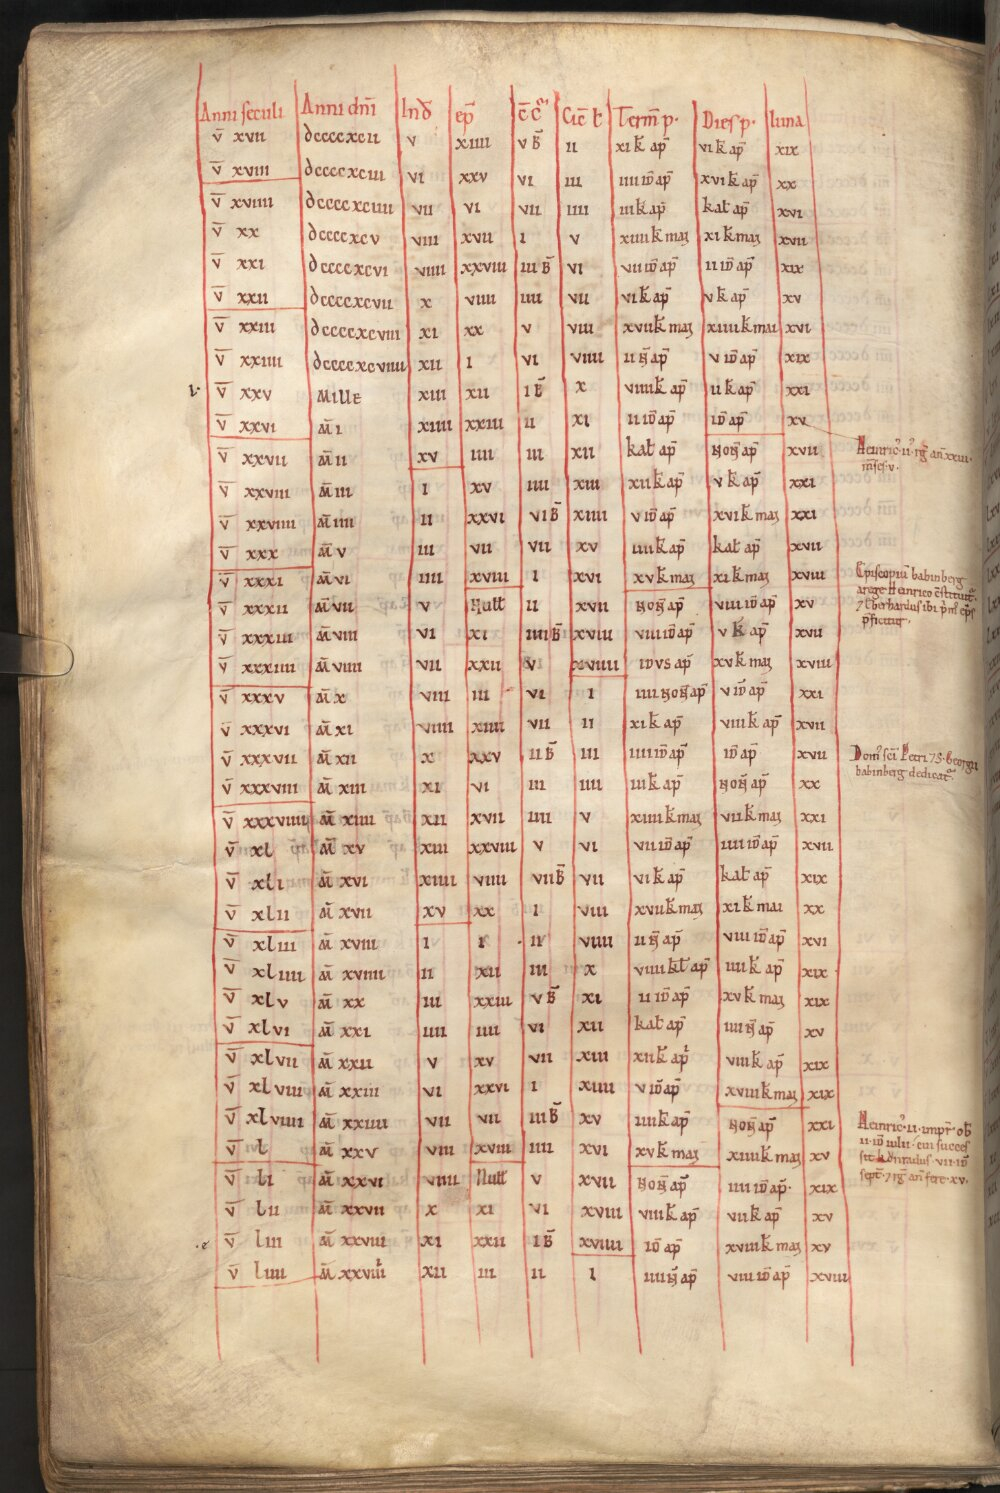 Anni seculi Anni dnī Ind ep̄ c̄c̄ Cic̄ ł Term̄ p. Dies p. luna
v̄ xvii dccccxcii v xiiii v B̄ ii xi k ap̄ vi k ap̄ xix
v̄ xviii dccccxciii vi xxv vi iii iiii id̄ ap̄ xvi k ap̄ xx
v̄ xviiii dccccxciiii vii vi vii iiii iii k ap̄ kał ap̄ xvi
v̄ xx dccccxcv viii xvii i v xiiii k mai xi k mai xvii
v̄ xxi dccccxcvi viiii xxviii iii B̄ vi vii id̄ ap̄ ii id̄ ap̄ xix
v̄ xxii dccccxcvii x viiii iiii vii vi k ap̄ v k ap̄ xv
v̄ xxiii dccccxcviii xi xx v viii xvii k mai xiiii k mai xvi
v̄ xxiiii dccccxcviiii xii i vi viiii ii n̄ ap̄ v id̄ ap̄ xix
v̄ xxv Mille xiii xii i B̄ x viiii k ap̄ ii k ap̄ xxi
v̄ xxvi M̄ i xiiii xxiii ii xi ii id̄ ap̄ id̄ ap̄ xv
Heinric᾽ ii᾽ rḡ an̄ xxiii.
m̄ses v.
v̄ xxvii M̄ ii xv iiii iii xii kał ap̄ non̄ ap̄ xvii
v̄ xxviii M̄ iii i xv iiii xiii xii k ap̄ v k ap̄ xxi
v̄ xxviiii M̄ iiii ii xxvi vi B̄ xiiii v id̄ ap̄ xvi k mai xxi
v̄ xxx M̄ v iii vii vii xv iiii k ap̄ kał ap̄ xvii
v̄ xxxi M̄ vi iiii xviii i xvi xv k mai xi k mai xviii
Episcopiū babinberg
a rege Heinrico cstituit᾽
⁊ Eberhardus ibi pm᾽ ep̄s
p̄ficitur
v̄ xxxii M̄ vii v Null ii xvii non̄ ap̄ viii id̄ ap̄ xv
v̄ xxxiii M̄ viii vi xi iiii B̄ xviii viii id̄ ap̄ v k ap̄ xvii
v̄ xxxiiii M̄ viiii vii xxii v xviiii idvs ap̄ xv k mai xviii
v̄ xxxv M̄ x viii iii vi i iiii non̄ ap̄ v id̄ ap̄ xxi
v̄ xxxvi M̄ xi viiii xiiii vii ii xi k ap̄ viii k ap̄ xvii
v̄ xxxvii M̄ xii x xxv ii B̄ iii iiii id̄ ap̄ id̄ ap̄ xvii
Dom᾽ sc̄i Petri ⁊ S. Georgii
babinberg dedicat᾽
v̄ xxxviii M̄ xiii xi vi iii iiii iii k ap̄ non̄ ap̄ xx
v̄ xxxviiii M̄ xiiii xii xvii iiii v xiiii k mai vii k mai xxi
v̄ xl M̄ xv xiii xxviii v vi vii id̄ ap̄ iiii id̄ ap̄ xvii
v̄ xli M̄ xvi xiiii viiii vii B̄ vii vi k ap̄ kał ap̄ xix
v̄ xlii M̄ xvii xv xx i viii xvii k mai xi k mai xx
v̄ xliii M̄ xviii i i ii viiii ii n̄ ap̄ viii id̄ ap̄ xvi
v̄ xliiii M̄ xviiii ii xii iii x viiii kł ap̄ iiii k ap̄ xix
v̄ xlv M̄ xx iii xxiii v B̄ xi ii id̄ ap̄ xv k mai xix
v̄ xlvi M̄ xxi iiii iiii vi xii kał ap̄ iiii n̄ ap̄ xv
v̄ xlvii M̄ xxii v xv vii xiii xii k ap̄ viii k ap̄ xix
v̄ xlviii M̄ xxiii vi xxvi i xiiii v id̄ ap̄ xviii k mai xix
v̄ xlviiii M̄ xxiiii vii vii iii B̄ xv iiii k ap̄ non̄ ap̄ xxi
Heinric᾽ ii impr̄ ob̄
ii id̄ iulii. cui succes
sit kōnradus vii id̄
sept̄. ⁊ rḡ an̄ fere xv.
v̄ l M̄ xxv viii xviii iiii xvi xv k mai xiiii k mai xv
v̄ li M̄ xxvi viiii Null v xvii non̄ ap̄ iiii id̄ ap̄ xix
v̄ lii M̄ xxvii x xi vi xviii viii k ap̄ vii k ap̄ xv
v̄ liii M̄ xxviii xi xxii i B̄ xviiii id̄ ap̄ xviii k mai xv
v̄ liiii M̄ xxviiii xii iii ii i iiii n̄ ap̄ viii id̄ ap̄ xviii